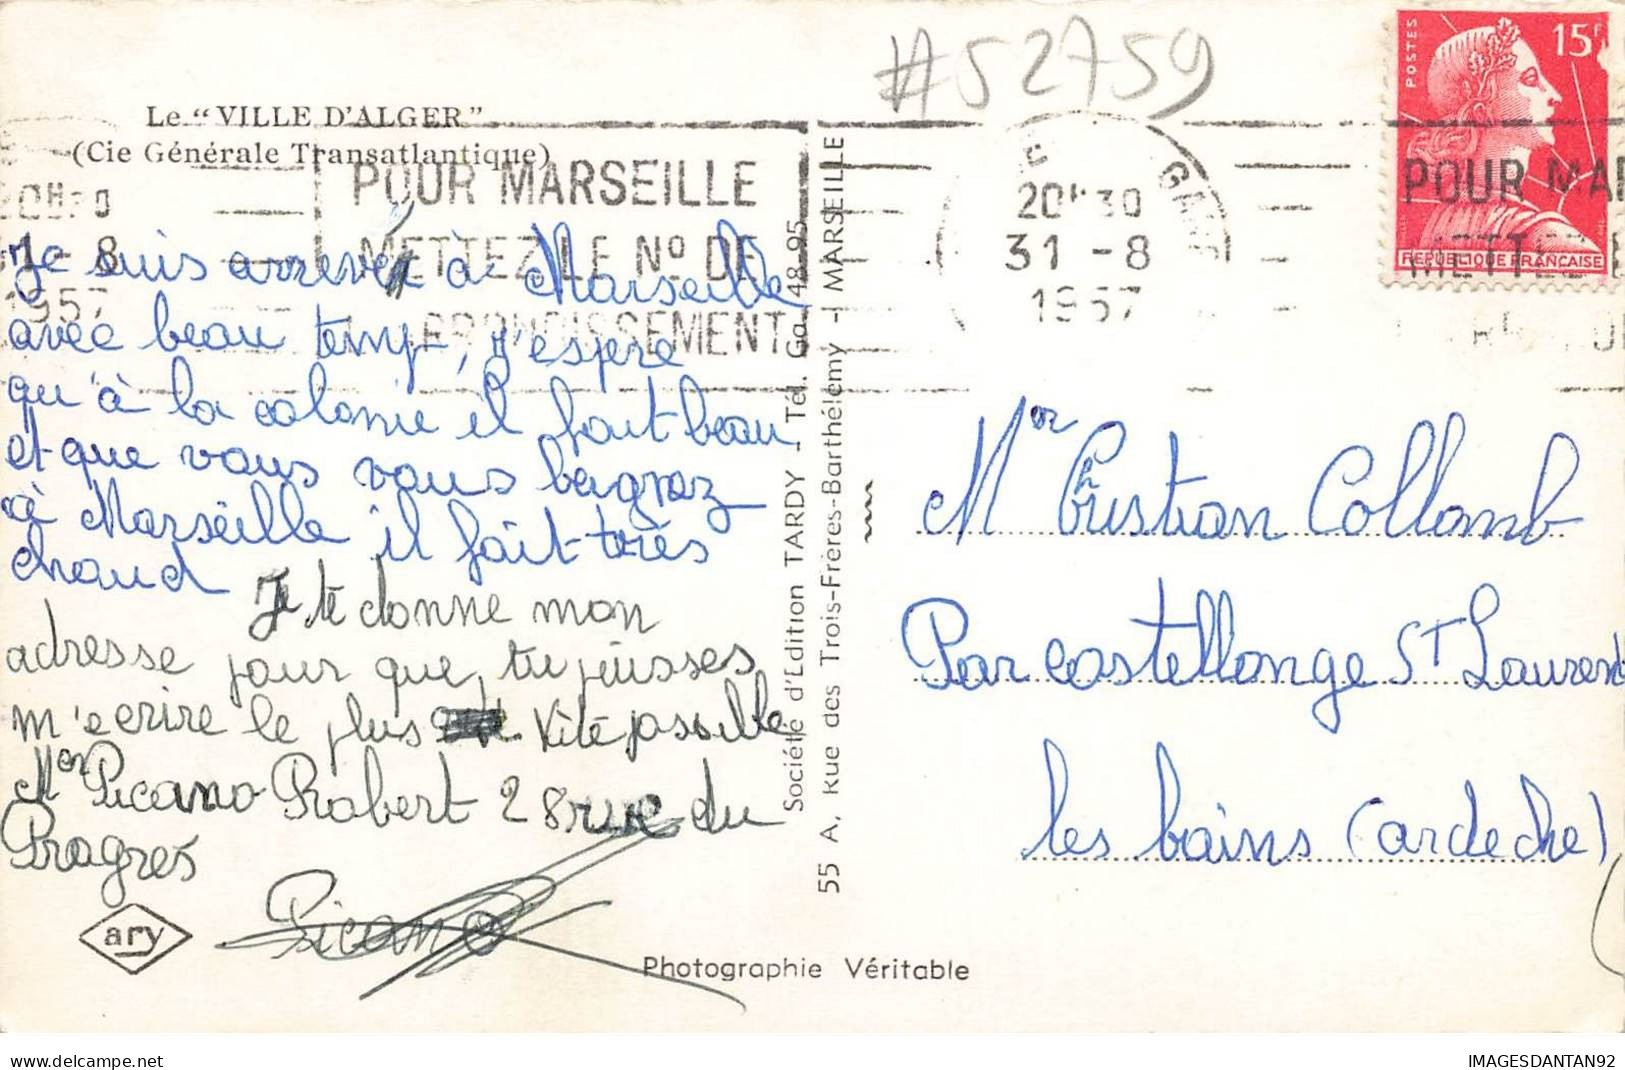 #52759
Le "VILLE D'ALGER"
(Cie Générale Transatlantique)
POUR MARSEILLE
METTEZ LE Nº DE
ARRONDISSEMENT
20H30
31-8
1957
GARE
15F
POSTES
REPUBLIQUE FRANÇAISE
POUR MAR
METTEZ
Je suis arrevé à Marseille
avec beau temp, j'espere
qu'à la colonie il fait beau
et que vous vous bagnaz
à Marseille il fait très
chaud
Je te donne mon
adresse pour que tu puisses
m'ecrire le plus vite possible
Mer Picano Robert 28 rue du
Progres
Picano
ary
Photographie Véritable
Société d'Edition TARDY - Tél. Ga. 48-95
55 A, Rue des Trois-Frères-Barthélemy - MARSEILLE
Mer Cristian Collomb
Par Castellonge St Laurent
les bains (ardeche)
delcampe.net
IMAGESDANTAN92